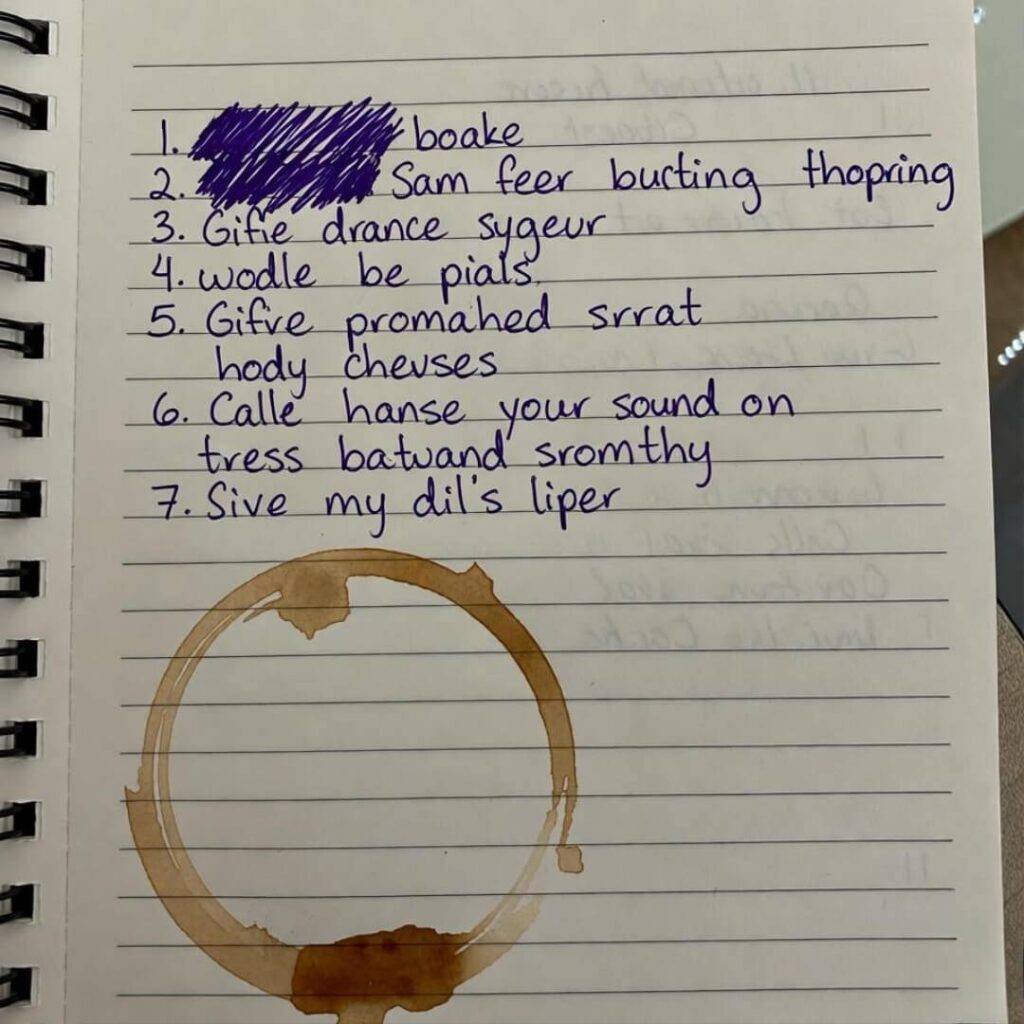 1. boake
2. Sam feer bucting thopring
3. Gifie drance sygeur
4. wodle be pials
5. Gifve promahed srrat
hody chevses
6. Calle hanse your sound on
tress batwand sromthy
7. Sive my dil's liper